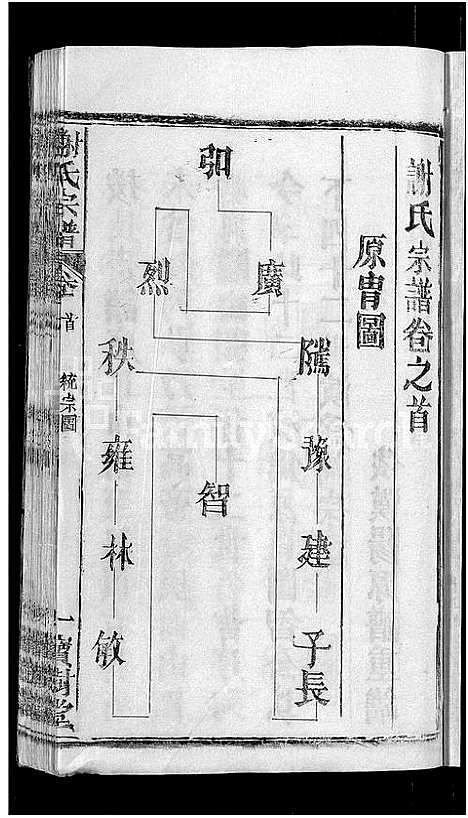 謝氏宗譜卷之首
原胄圖
卯
廣
烈
隲
豫
建
子長
智
秩
雍
林
敏
謝氏宗譜
卷首
統宗圖
一
寶樹堂